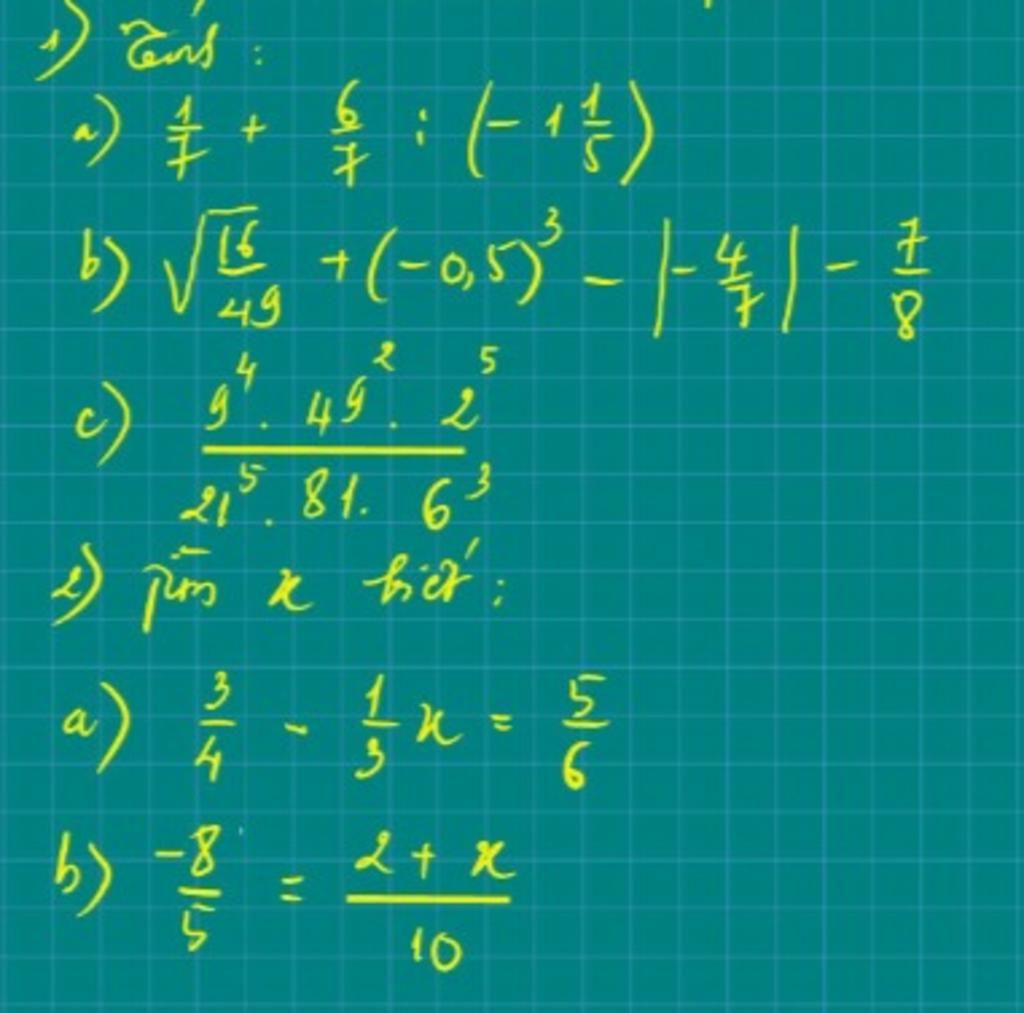 1) Tính :
a) 1/7 + 6/7 : (-1 1/5)
b) √(16/49) + (-0,5)³ - |-4/7| - 7/8
c) (9⁴ . 49² . 2⁵)/(21⁵ . 81 . 6³)
2) Tìm x biết :
a) 3/4 - 1/3 x = 5/6
b) -8/5 = (2 + x)/10